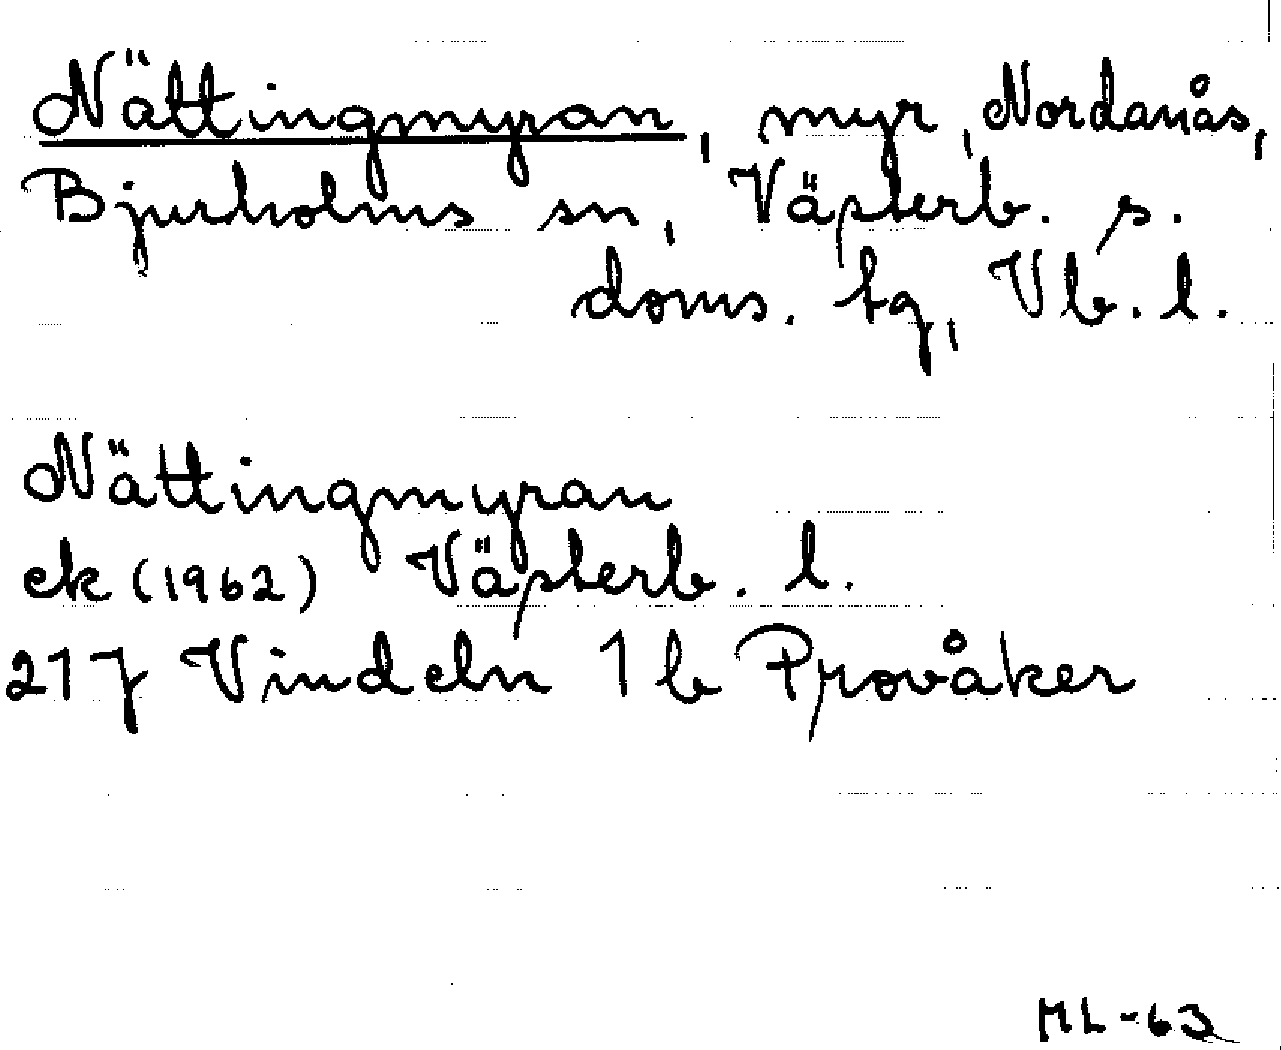 Nättingmyran, myr, Nordanås,
Bjurholms sn, Västerb. s.
doms. tg, Vb. l.
Nättingmyran
ek (1962) Västerb. l.
21 J Vindeln 1 b Provåker
ML-63